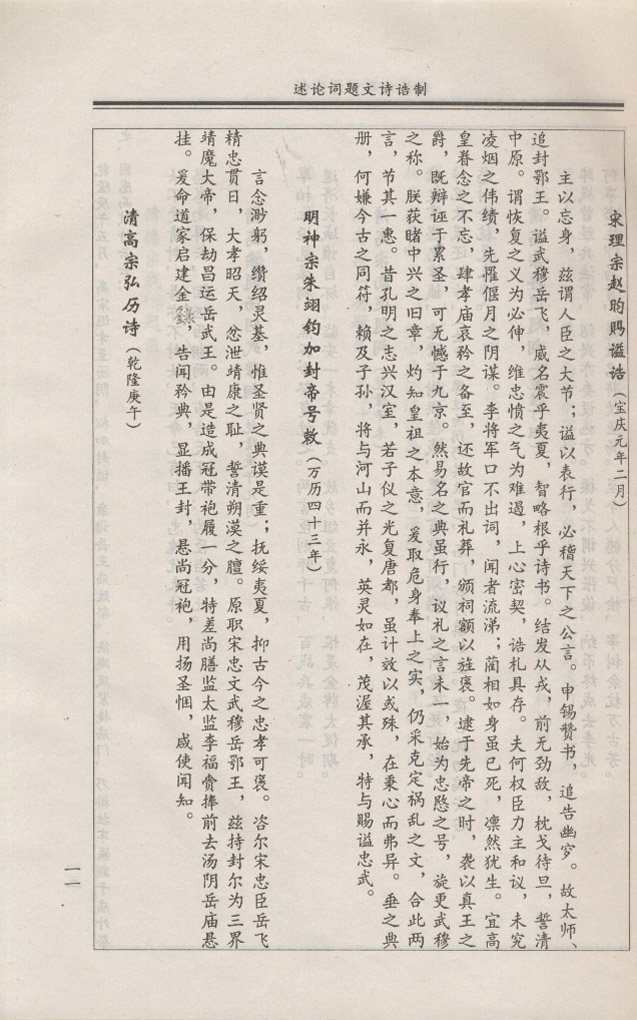 述论词题文诗诰制
宋理宗赵昀赐谥诰（宝庆元年二月）
主以忘身，兹谓人臣之大节；谥以表行，必稽天下之公言。申锡赞书，追告幽穸。故太师、
追封鄂王。谥武穆岳飞，威名震乎夷夏，智略根乎诗书。结发从戎，前无劲敌，枕戈待旦，誓清
中原。谓恢复之义为必伸，维忠愤之气为难遏，上心密契，诰札具存。夫何权臣力主和议，未究
凌烟之伟绩，先罹偃月之阴谋。李将军口不出词，闻者流涕；蔺相如身虽已死，凛然犹生。宜高
皇眷念之不忘，肆孝庙哀矜之备至，还故官而礼葬，颁祠额以旌褒。逮于先帝之时，袭以真王之
爵，既辩诬于累圣，可无憾于九京。然易名之典虽行，议礼之言未一，始为忠愍之号，旋更武穆
之称。朕获睹中兴之旧章，灼知皇祖之本意，爰取危身奉上之实，仍采克定祸乱之文，合此两
言，节其一惠。昔孔明之志兴汉室，若子仪之光复唐都，虽计效以或殊，在秉心而弗异。垂之典
册，何嫌今古之同符，赖及子孙，将与河山而并永，英灵如在，茂渥其承，特与赐谥忠武。
明神宗朱翊钧加封帝号敕（万历四十三年）
言念渺躬，缵绍灵基，惟圣贤之典谟是重；抚绥夷夏，抑古今之忠孝可褒。洛尔宋忠臣岳飞
精忠贯日，大孝昭天，忿泄靖康之耻，誓清朔漠之膻。原职宋忠文武穆岳鄂王，兹持封尔为三界
靖魔大帝，保劫昌运岳武王。由是造成冠带袍履一分，特差尚膳监太监李福赍捧前去汤阴岳庙悬
挂。爰命道家启建金籙，告闻矜典，显播王封，悬尚冠袍，用扬圣悃，咸使闻知。
清高宗弘历诗（乾隆庚午）
一一